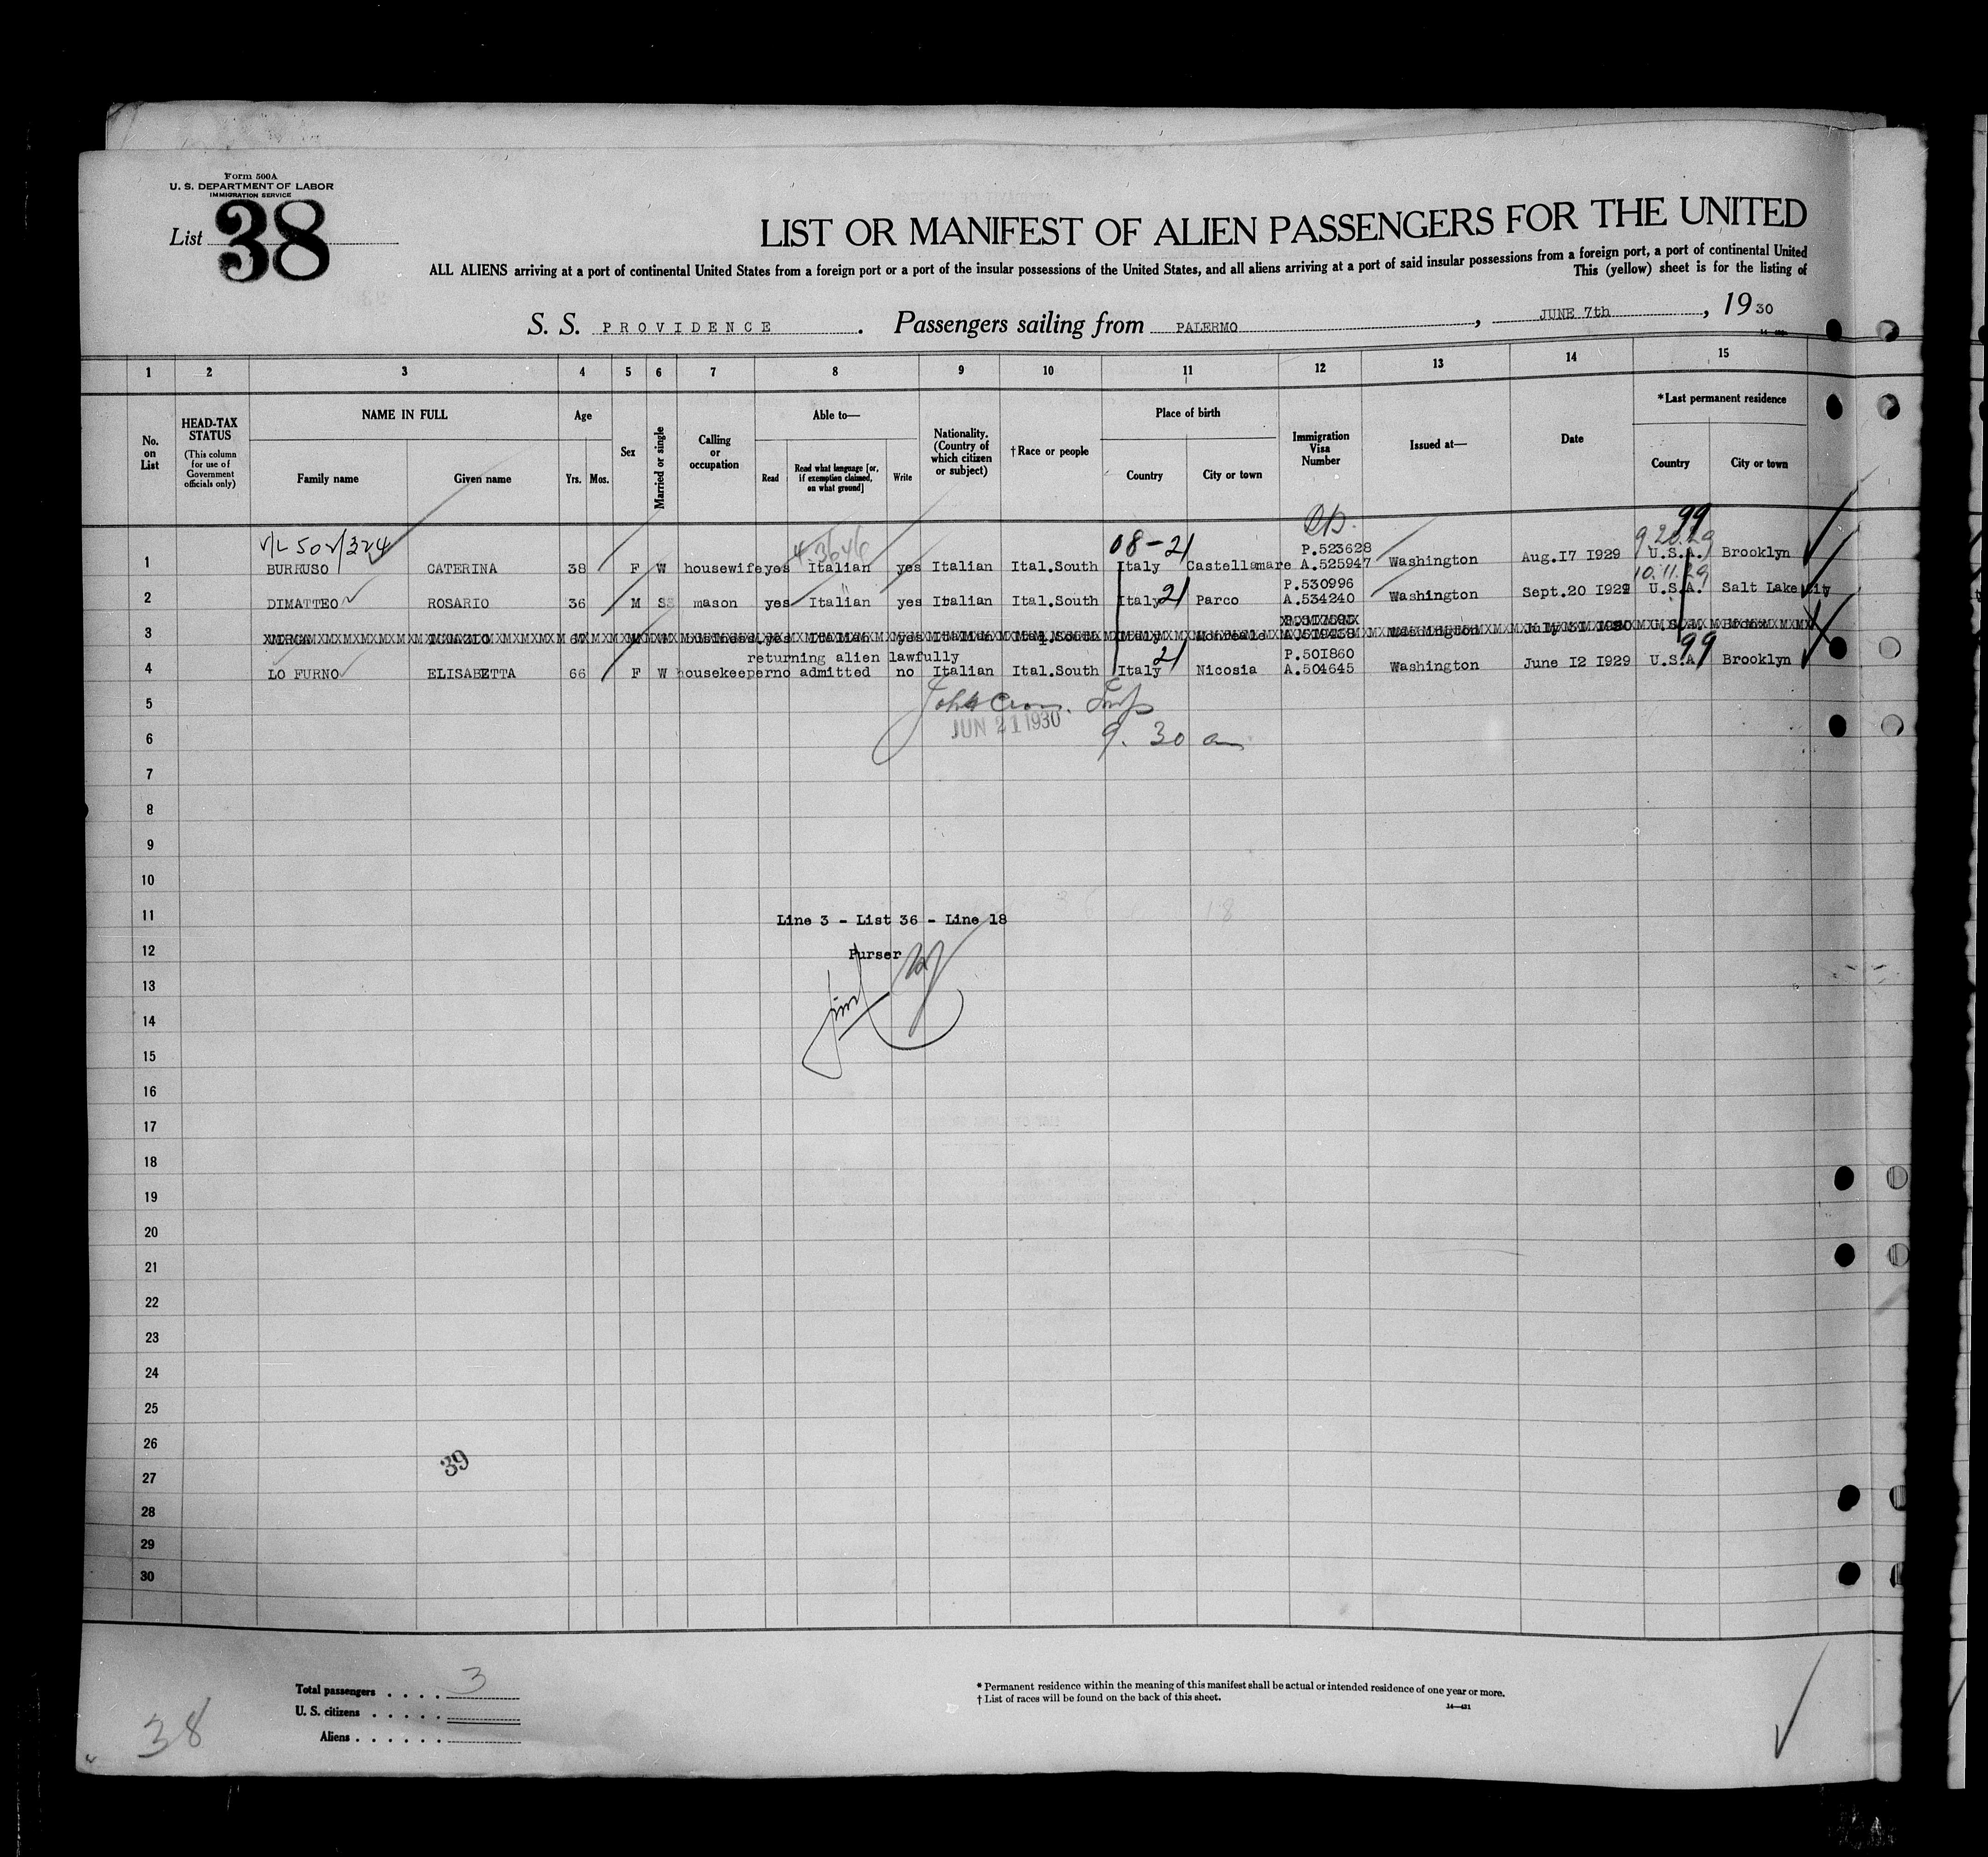 Form 500A
U. S. DEPARTMENT OF LABOR
IMMIGRATION SERVICE
List 38
LIST OR MANIFEST OF ALIEN PASSENGERS FOR THE UNITED
ALL ALIENS arriving at a port of continental United States from a foreign port or a port of the insular possessions of the United States, and all aliens arriving at a port of said insular possessions from a foreign port, a port of continental United
This (yellow) sheet is for the listing of
S. S. PROVIDENCE. Passengers sailing from PALERMO, JUNE 7th, 1930
1 2 3 4 5 6 7 8 9 10 11 12 13 14 15
No. on List
HEAD-TAX STATUS
(This column for use of Government officials only)
NAME IN FULL
Family name Given name
Age
Yrs. Mos.
Sex
Married or single
Calling or occupation
Able to—
Read Read what language [or, if exemption claimed, on what ground] Write
Nationality. (Country of which citizen or subject)
†Race or people
Place of birth
Country City or town
Immigration Visa Number
Issued at—
Date
*Last permanent residence
Country City or town
99
08-21 P.523628 9 20.29
1 BURRUSO CATERINA 38 F W housewife yes Italian yes Italian Ital.South Italy Castellamare A.525947 Washington Aug.17 1929 U.S.A. Brooklyn
P.530996 10.11.29
2 DIMATTEO ROSARIO 36 M S mason yes Italian yes Italian Ital.South Italy 21 Parco A.534240 Washington Sept.20 1929 U.S.A. Salt Lake City
3
returning alien lawfully P.501860 99
4 LO FURNO ELISABETTA 66 F W housekeeper no admitted no Italian Ital.South Italy 21 Nicosia A.504645 Washington June 12 1929 U.S.A. Brooklyn
5
JUN 21 1930
6 9.30 am
7
8
9
10
11 Line 3 - List 36 - Line 18
12 Purser
13
14
15
16
17
18
19
20
21
22
23
24
25
26
39
27
28
29
30
Total passengers . . . . 3
U. S. citizens . . . . .
Aliens . . . . . .
38
* Permanent residence within the meaning of this manifest shall be actual or intended residence of one year or more.
† List of races will be found on the back of this sheet.